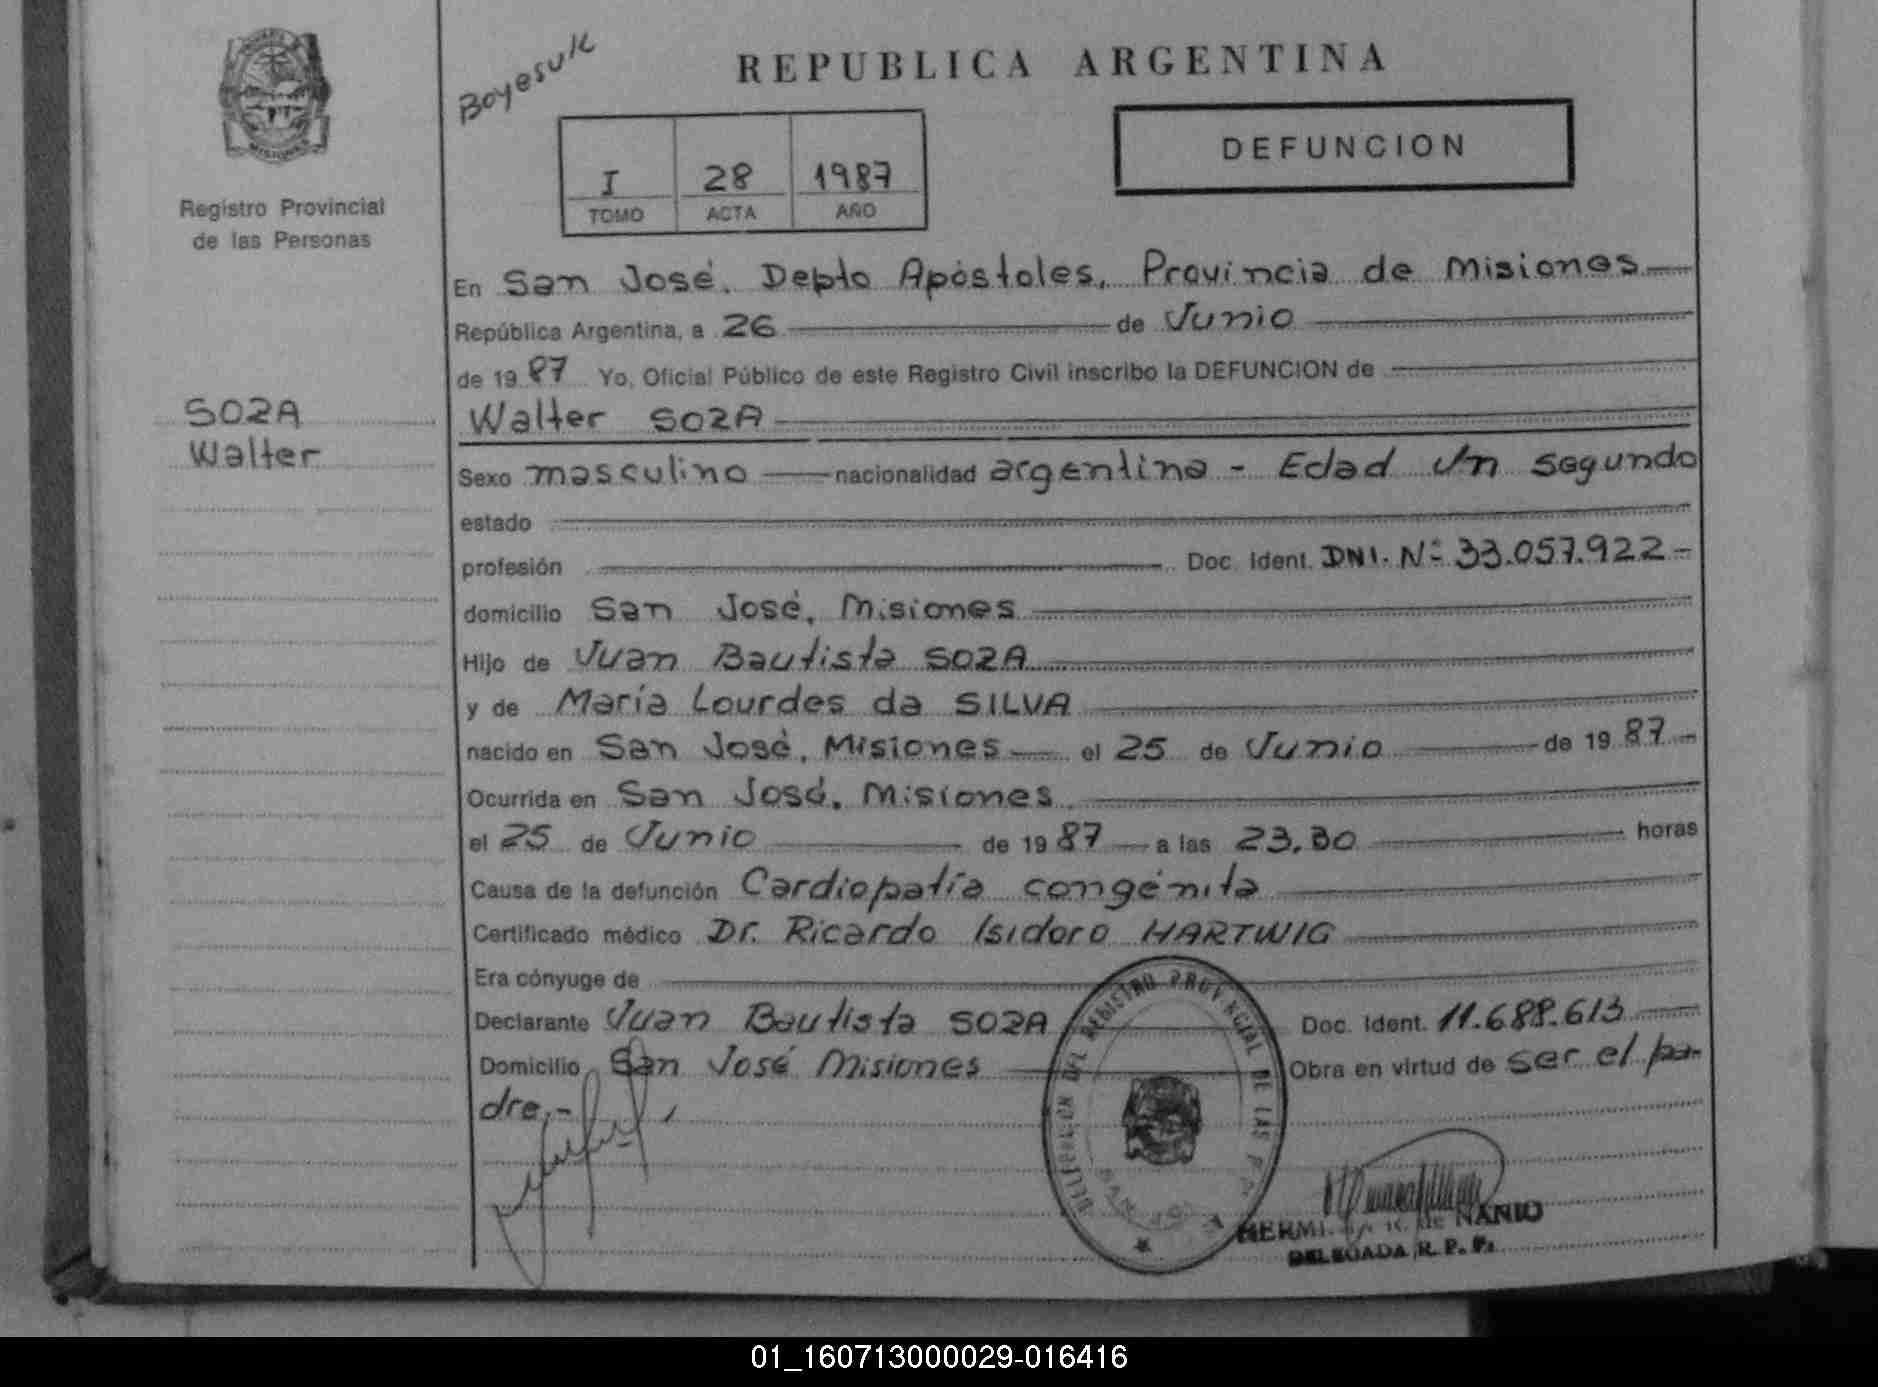 Boyesuk
REPUBLICA ARGENTINA
DEFUNCION
I 28 1987
TOMO ACTA AÑO
MISIONES
Registro Provincial
de las Personas
SOZA
Walter
En San José, Depto Apóstoles, Provincia de Misiones
República Argentina, a 26 de Junio
de 1987 Yo, Oficial Público de este Registro Civil inscribo la DEFUNCION de
Walter SOZA
Sexo masculino nacionalidad argentina - Edad Un segundo
estado
profesión Doc. Ident. DNI. Nº 33.057.922-
domicilio San José, Misiones
Hijo de Juan Bautista SOZA
y de María Lourdes da SILVA
nacido en San José, Misiones el 25 de Junio de 1987-
Ocurrida en San José, Misiones
el 25 de Junio de 1987 a las 23,30 horas
Causa de la defunción Cardiopatía congénita
Certificado médico Dr. Ricardo Isidoro HARTWIG
Era cónyuge de
Declarante Juan Bautista SOZA Doc. Ident. 11.688.613
Domicilio San José Misiones Obra en virtud de ser el pa-
dre.-
DELEGACION DEL REGISTRO PROVINCIAL DE LAS
DE NANIO
DELEGADA R. P. P.
01_160713000029-016416